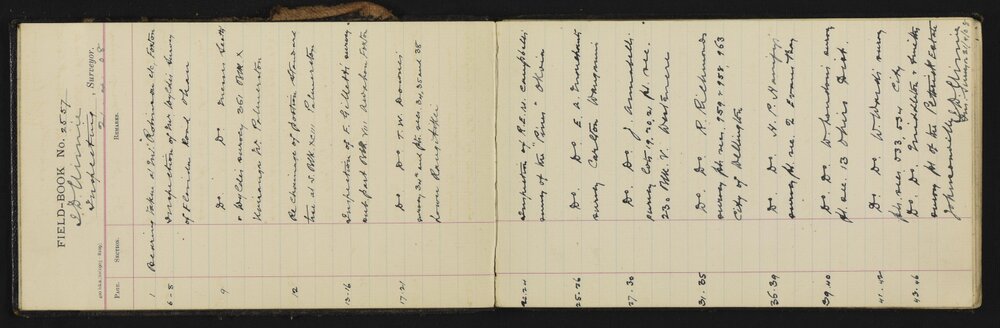 FIELD-BOOK No. 2557
J D Climie
Inspecting Surveyor.
PAGE. SECTION. REMARKS.
1 Bearing taken at Trig Robinson etc Foxton
6-8 Inspection of Mr Wyldes Survey
of Flander Road Ohau
9 Do Do Messrs Scott
+ Wyldes survey 361 Blk X
Kairanga Dr Palmerston
12 Re Chainage of portion Standard
line at S. Blk XIII Palmerston
13-16 Inspection of E. Gillett's survey
sub part Blk VII Foxton
17-21 Do Do T. W. Downes
survey 34a and pt secs. 34, 35 and 38
Lower Rangitikei
22-24 Inspection of R.E.H. Campbell's
survey of the "Pines"
25-26 Do Do E. A.
survey Carlton Wanganui
27-30 Do Do J. Annabell's
survey Lots 19, 20, 21 pt sec.
230 Blk V. Westmere
31-35 Do Do R. Richmond's
survey pt secs. 959 + 958 963
City of Wellington
36-39 Do Do H. P. Hanify's
survey pt sec 2 Evans Bay
39-40 Do Do survey
pt sec 13 Ohiro Dist
41-42 Do Do W Ward's survey
pt secs 533, 534 City
43-46 Do Do Middleton + Smith's
survey pt of the Estate
Johnsonville J D Climie